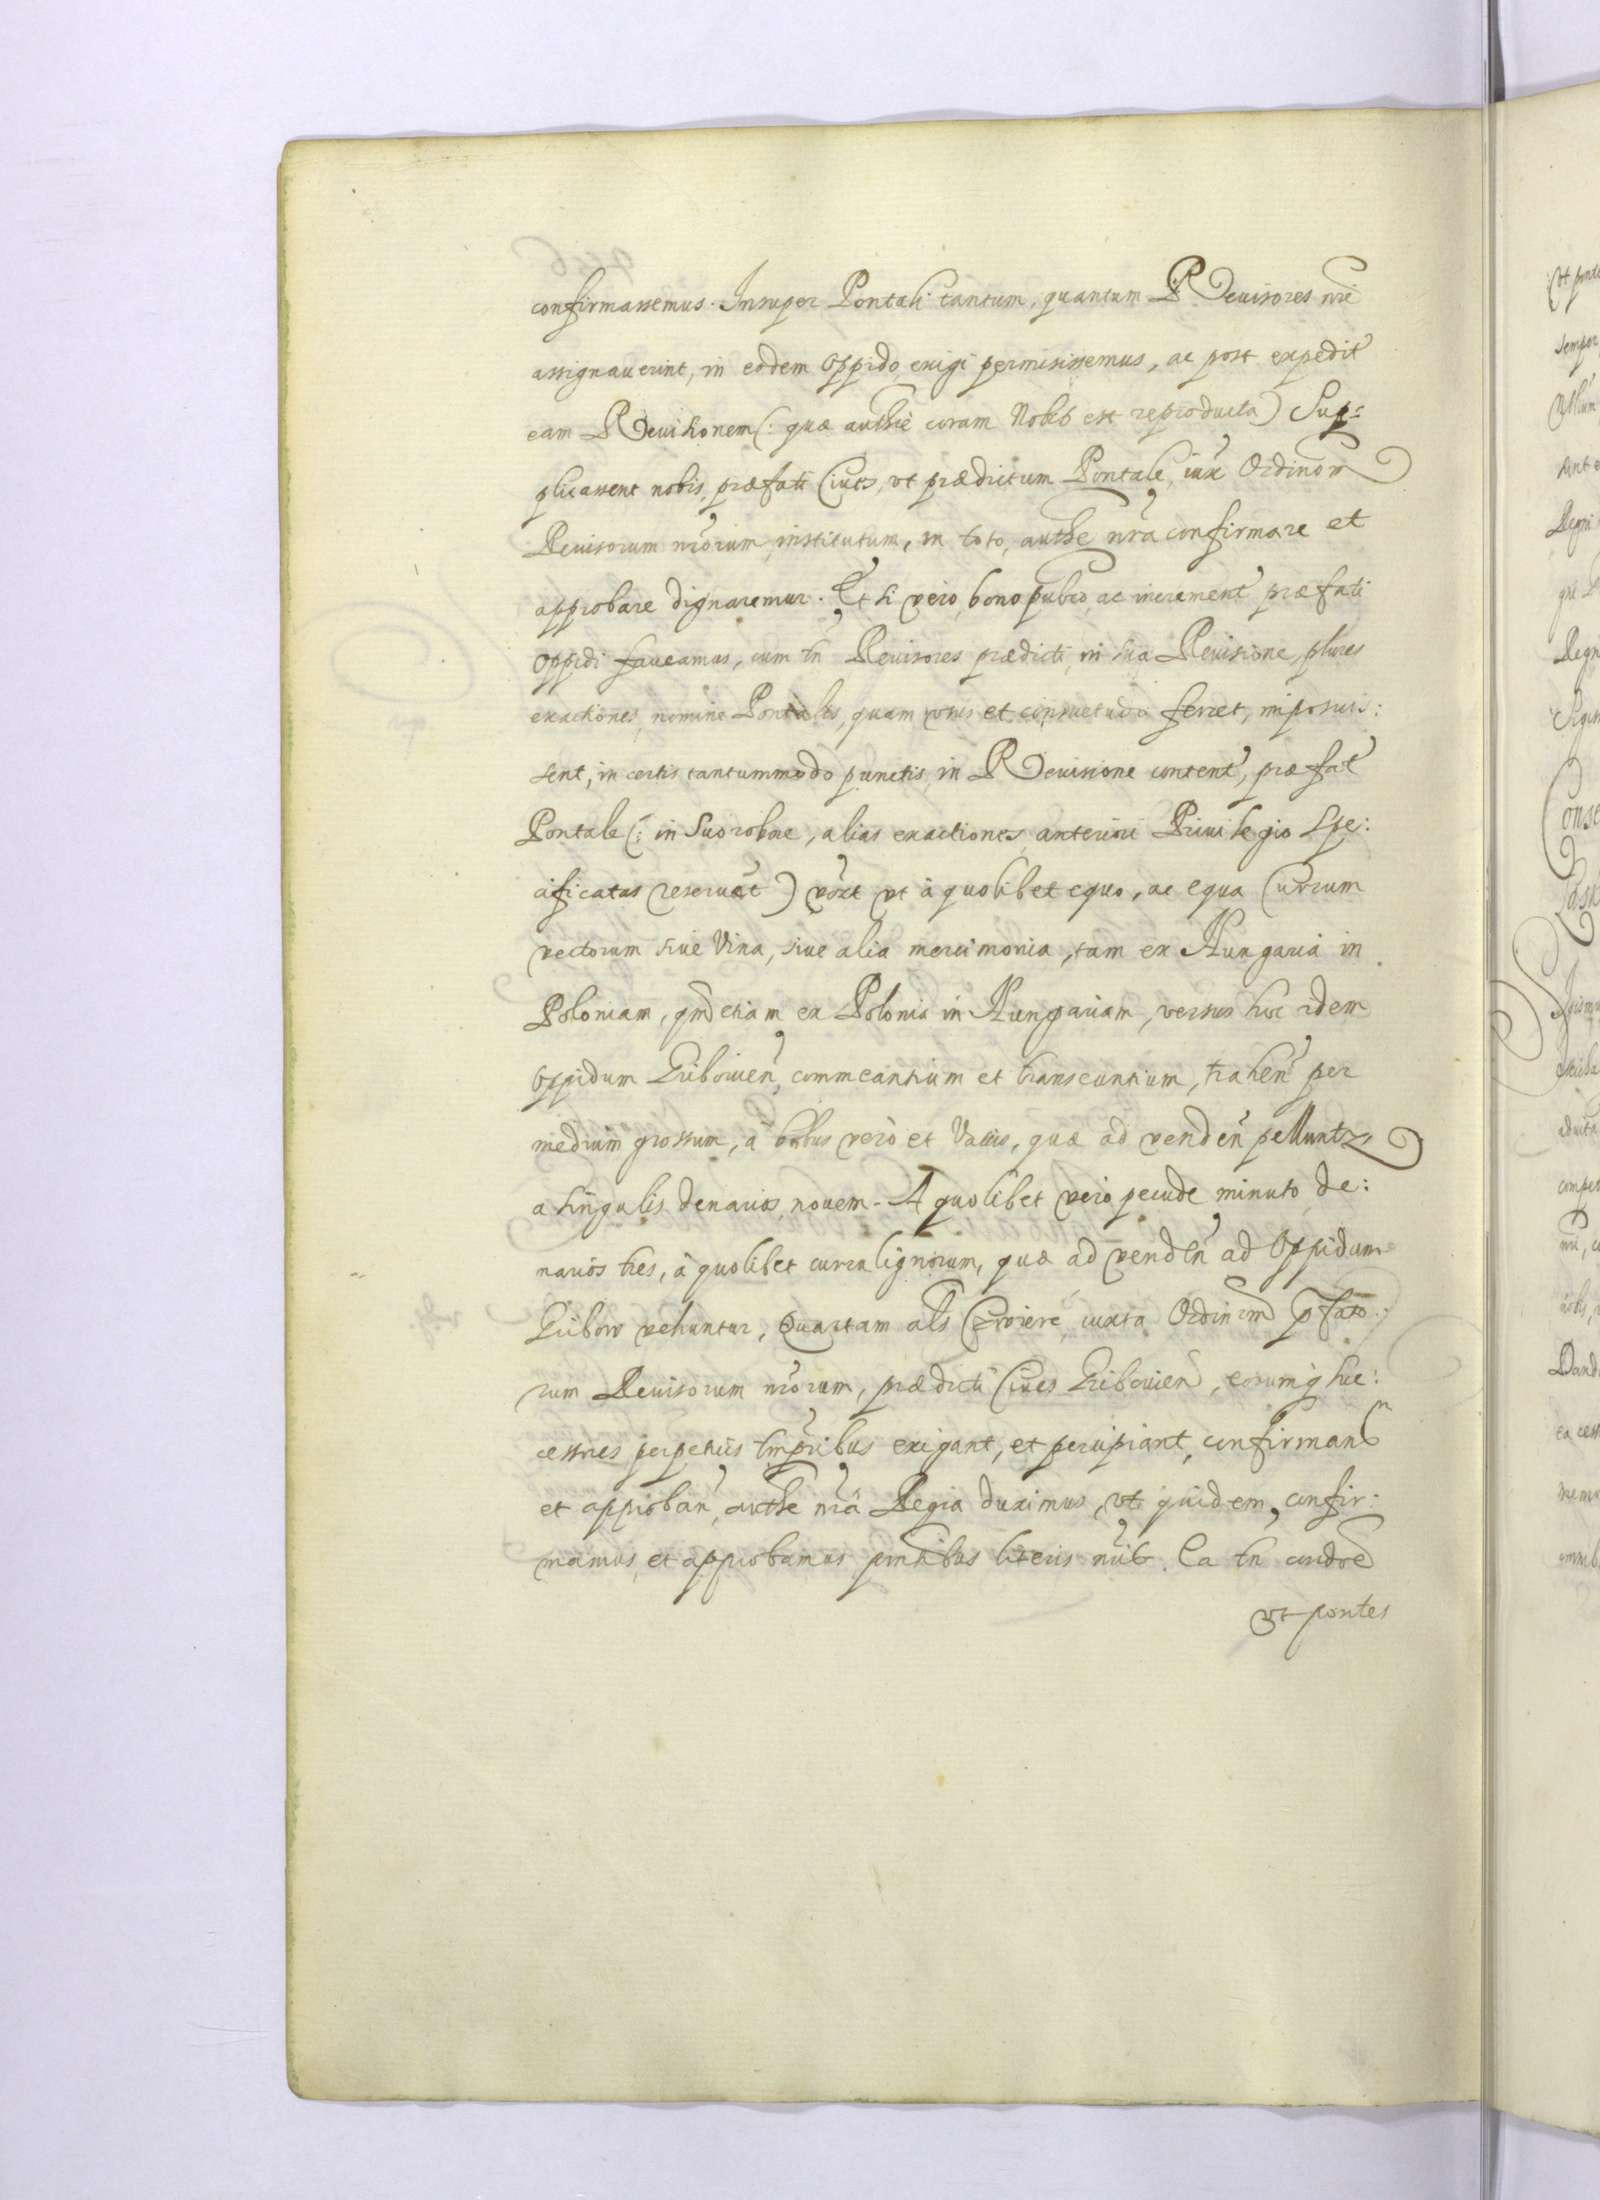 confirmassemus. Insuper Pontali tantum, quantum Revisores nri
assignaverint, in eodem Oppido, exigi permisissemus, ac post expedit
eam Revisionem (: quæ authe coram Nobis est reproducta) Sup:
plicassent nobis, præfati Cives, vt prædictum Pontale, iux Ordinom
Revisorum nrorum institutum, in toto, authe nra confirmare et
approbare dignaremur. Et si vero, bono publco, ac increment præfati
Oppidi faveamus, cum tn Revisores prædicti, in sua Revisione, plures
exactiones, nomine Pontalis, quam vsus et consuetudo ferret, imposuis:
sent, in certis tantummodo punctis, in Revisione content, præfat
Pontale (: in suo robore, alias exactiones, anteriori Privilegio Spe:
cificatas reservat) vt à quolibet equo, ac equa Currum
vectorum sive Vina, sive alia mercimonia, tam ex Hungaria in
Poloniam, qm etiam ex Polonia in Hungariam, versus hoc idem
Oppidum Gribovien, commeantium et transeuntium, trahen per
medium grossum, à bobus vero et Vaccis, quæ ad venden pelluntur,
a singulis denarios, novem. A quolibet vero pecude minuto de:
narios tres, à quolibet curru lignorum, quæ ad venden ad Oppidum
Gribow vehuntur, Quartam als Cwierc, iuxta Ordinom pfato:
rum Revisorum nrorum, prædicti Cives Gribovien, eorumq suc:
cessores perpetuis tmporibus exigant, et percipiant, confirman
et approban, authe nra Regia duximus, vti quidem, confir:
mamus, et approbamus, pntibus literis nris. Ea tn condoe
vt pontes